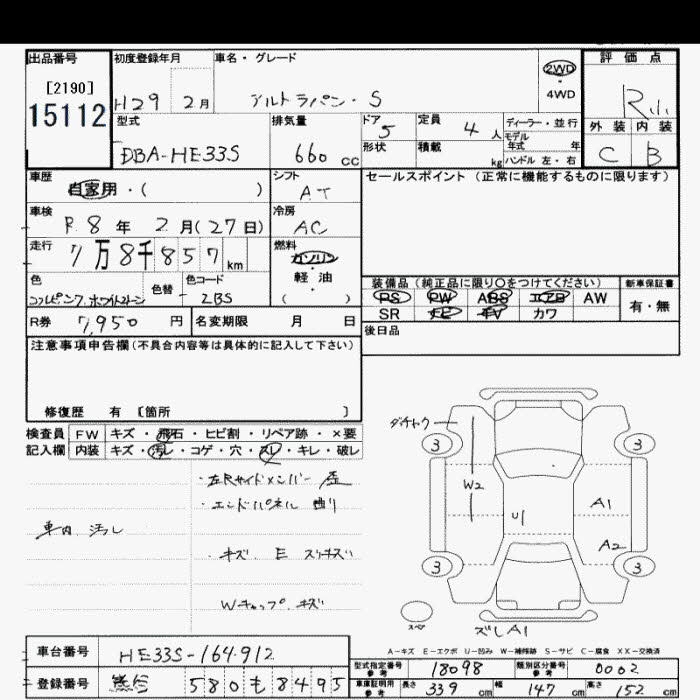 出品番号 初度登録年月 車名・グレード 評価点
[2190] 2WD
15112 H29 2月 アルトラパン・S 4WD R小
型式 排気量 ドア 5 定員 4人 ディーラー・並行 外装 内装
DBA-HE33S 660 cc 形状 積載 kg モデル年式 年 C B
ハンドル 左・右
車歴 シフト セールスポイント (正常に機能するものに限ります)
自家用・( ) AT
車検 冷房
R 8年 2月(27日) AC
走行 燃料
7万8千857km ガソリン
色 色替 色コード 軽油 装備品 (純品に限り○をつけてください) 新車保証書
ZBS ( ) PS PW ABS エアB AW 有・無
R券 7,950円 名変期限 月 日 SR ナビ TV カワ
後日品
注意事項申告欄(不具合内容等は具体的に記入して下さい)
修復歴 有 [箇所 ]
検査員 FW キズ・飛石・ヒビ割・リペア跡・×要
記入欄 内装 キズ・汚レ・コゲ・穴・スレ・キレ・破レ
ダチャク
3 3
・左Rサイドメンバー 歪
W2
・エンドパネル 曲り
A1
U1
車内 汚レ
・キズ E スリキズ
A2
3 3
Wキャップ キズ
スペア
ズレA1
A-キズ E-エクボ U-凹み W-補修跡 S-サビ C-腐食 XX-交換済
車台番号 HE33S-164912
型式指定番号 参考 18098 類別区分番号 参考 0002
登録番号 熊谷 580 も 8495
車庫証明用 参考 長さ 339 cm 幅 147 cm 高さ 152 cm